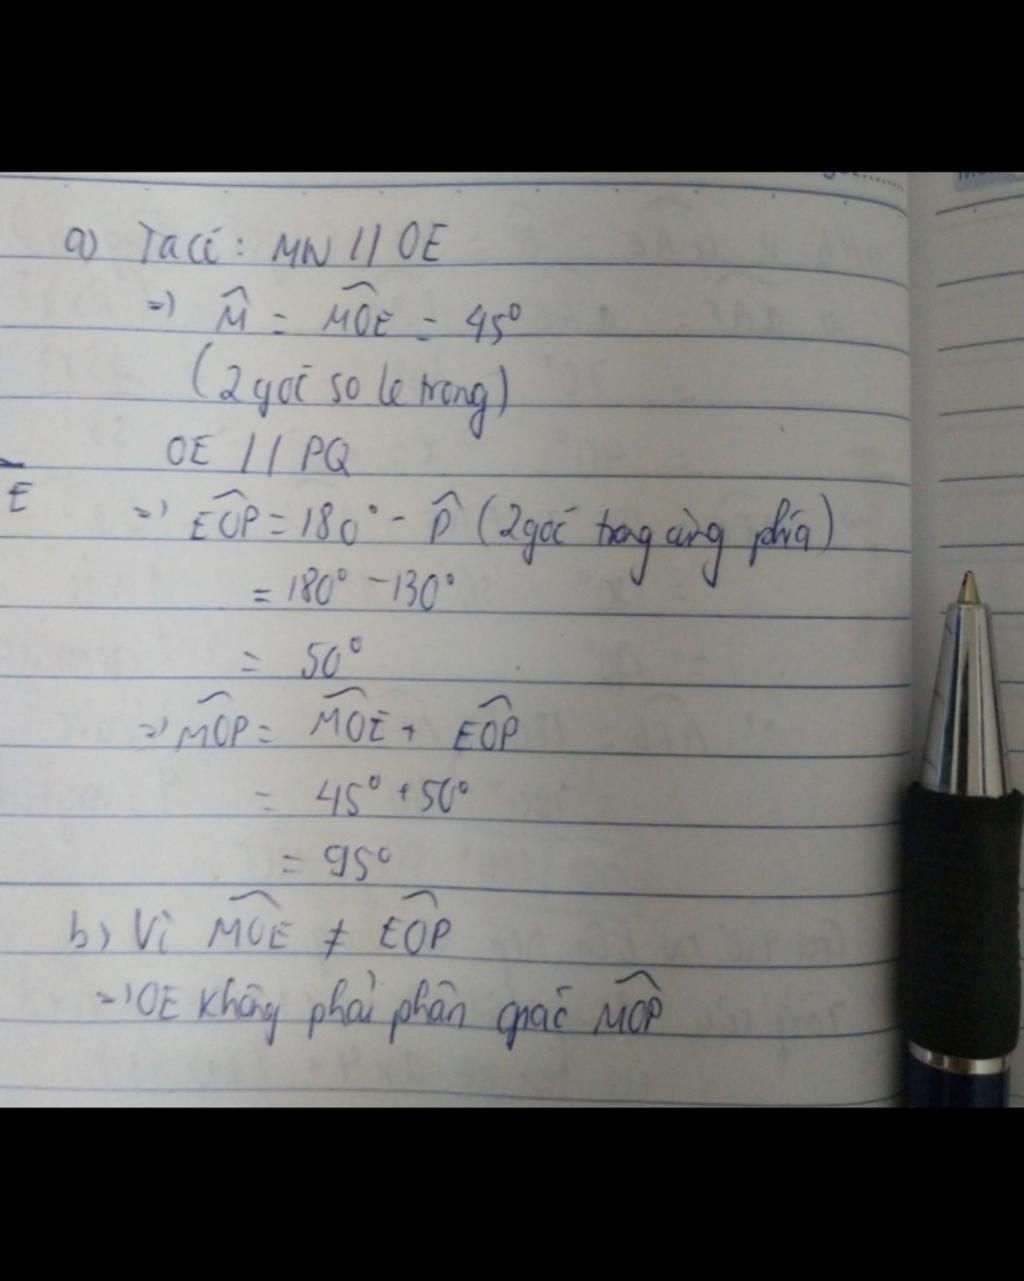 a) Ta có: MN // OE
=> M̂ = M̂OE = 45°
(2 góc so le trong)
OE // PQ
E
=> ÊOP = 180° - P̂ (2 góc trong cùng phía)
= 180° - 130°
= 50°
=> M̂OP = M̂OE + ÊOP
= 45° + 50°
= 95°
b) Vì M̂OE ≠ ÊOP
=> OE không phải phân giác M̂OP